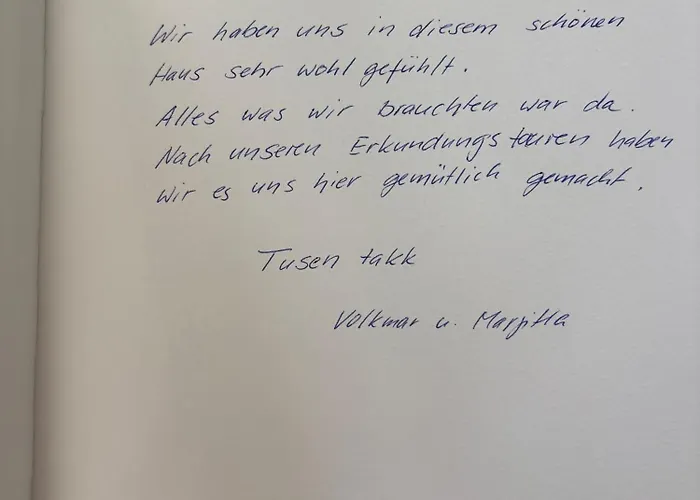 Wir haben uns in diesem schönen
Haus sehr wohl gefühlt.
Alles was wir brauchten war da.
Nach unseren Erkundungstouren haben
wir es uns hier gemütlich gemacht.
Tusen takk
Volkmar u. Margitta